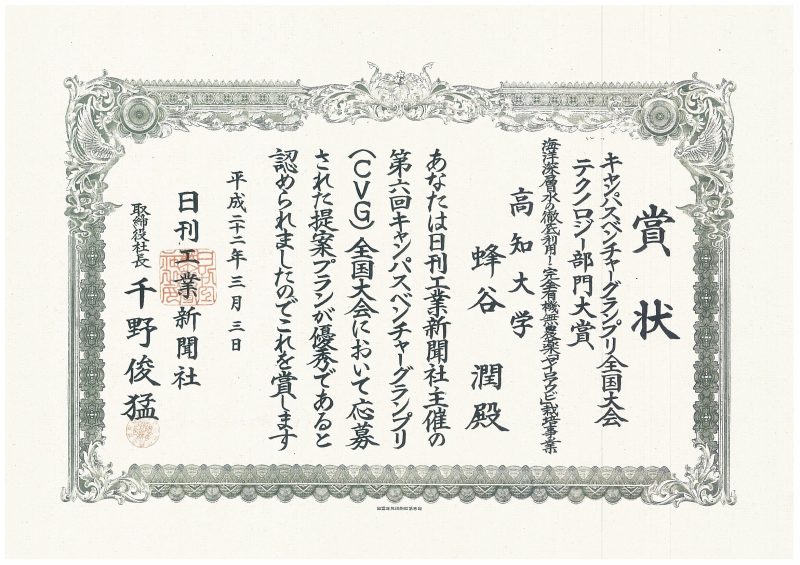 賞状
キャンパスベンチャーグランプリ全国大会
テクノロジー部門大賞
高知大学
蜂谷 潤殿
あなたは日刊工業新聞社主催の
第六回キャンパスベンチャーグランプリ
(CVG)全国大会において応募
された提案プランが優秀であると
認められましたのでこれを賞します
平成二十二年三月三日
日刊工業新聞社
取締役社長 千野俊猛